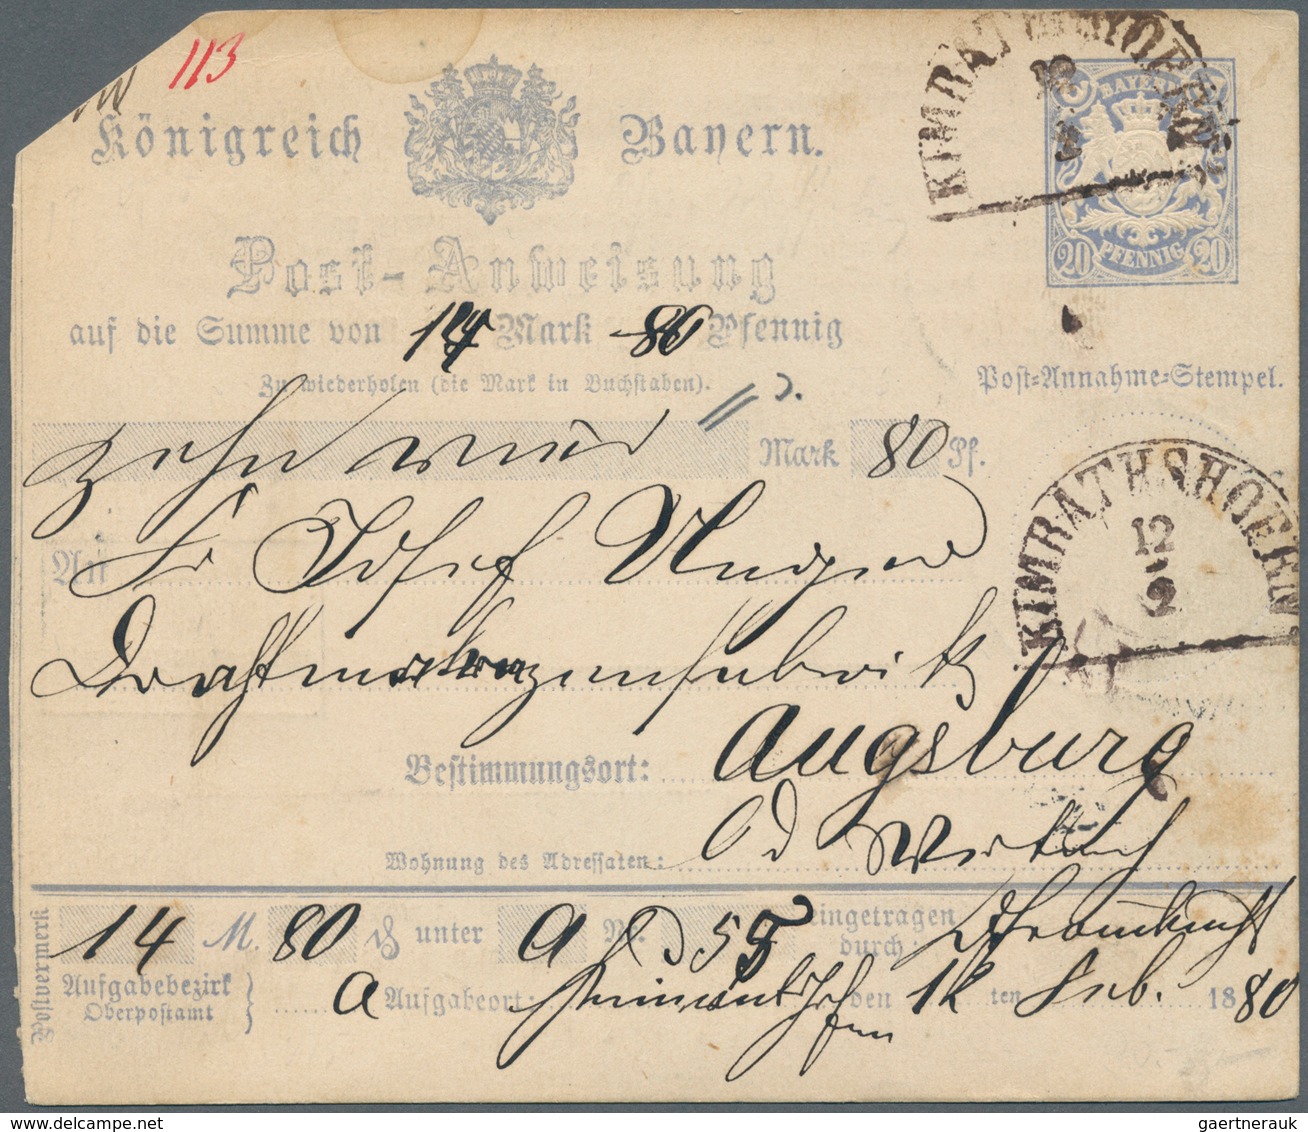 113
KIMRATHSHOFEN.
12
2
Königreich Bayern.
BAYERN
20 PFENNIG 20
Post-Anweisung
auf die Summe von 14 Mark 80 Pfennig
Zu wiederholen (die Mark in Buchstaben).
Post=Annahme=Stempel.
zehn vier Mark 80 Pf.
KIMRATHSHOFEN.
12
2
An Josef Unger
Augsburg
Bestimmungsort:
Wohnung des Adressaten:
Postvermerk
14 M. 80 ₰ unter A Nr. 55 eingetragen durch:
Aufgabebezirk Oberpostamt } A Aufgabeort: den 12 ten Feb. 1880
gaertnerauk